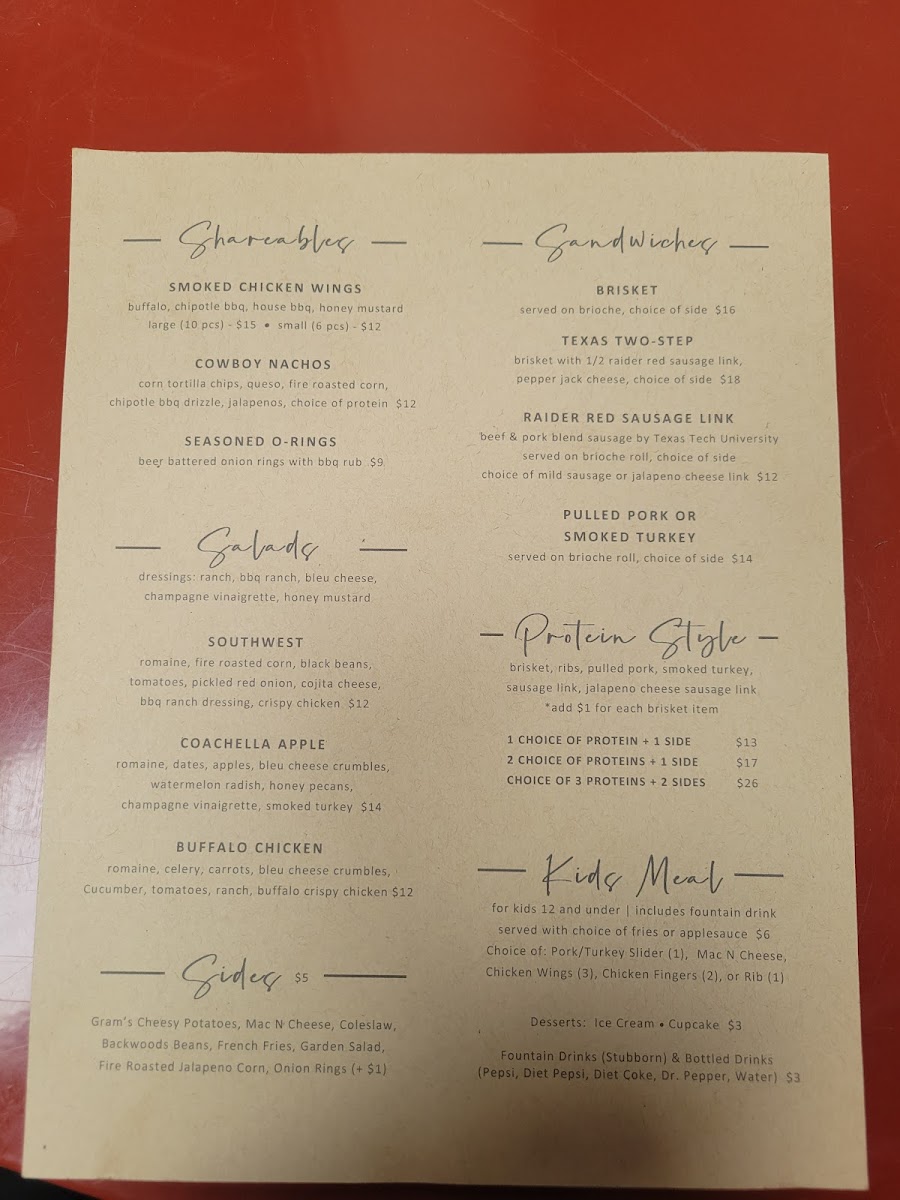 Shareables
SMOKED CHICKEN WINGS
buffalo, chipotle bbq, house bbq, honey mustard
large (10 pcs) - $15 • small (6 pcs) - $12
COWBOY NACHOS
corn tortilla chips, queso, fire roasted corn,
chipotle bbq drizzle, jalapenos, choice of protein $12
SEASONED O-RINGS
beer battered onion rings with bbq rub $9
Salads
dressings: ranch, bbq ranch, bleu cheese,
champagne vinaigrette, honey mustard
SOUTHWEST
romaine, fire roasted corn, black beans,
tomatoes, pickled red onion, cojita cheese,
bbq ranch dressing, crispy chicken $12
COACHELLA APPLE
romaine, dates, apples, bleu cheese crumbles,
watermelon radish, honey pecans,
champagne vinaigrette, smoked turkey $14
BUFFALO CHICKEN
romaine, celery, carrots, bleu cheese crumbles,
Cucumber, tomatoes, ranch, buffalo crispy chicken $12
Sides $5
Gram's Cheesy Potatoes, Mac N Cheese, Coleslaw,
Backwoods Beans, French Fries, Garden Salad,
Fire Roasted Jalapeno Corn, Onion Rings (+ $1)
Sandwiches
BRISKET
served on brioche, choice of side $16
TEXAS TWO-STEP
brisket with 1/2 raider red sausage link,
pepper jack cheese, choice of side $18
RAIDER RED SAUSAGE LINK
beef & pork blend sausage by Texas Tech University
served on brioche roll, choice of side
choice of mild sausage or jalapeno cheese link $12
PULLED PORK OR
SMOKED TURKEY
served on brioche roll, choice of side $14
Protein Style
brisket, ribs, pulled pork, smoked turkey,
sausage link, jalapeno cheese sausage link
*add $1 for each brisket item
1 CHOICE OF PROTEIN + 1 SIDE $13
2 CHOICE OF PROTEINS + 1 SIDE $17
CHOICE OF 3 PROTEINS + 2 SIDES $26
Kids Meal
for kids 12 and under | includes fountain drink
served with choice of fries or applesauce $6
Choice of: Pork/Turkey Slider (1), Mac N Cheese,
Chicken Wings (3), Chicken Fingers (2), or Rib (1)
Desserts: Ice Cream • Cupcake $3
Fountain Drinks (Stubborn) & Bottled Drinks
(Pepsi, Diet Pepsi, Diet Coke, Dr. Pepper, Water) $3